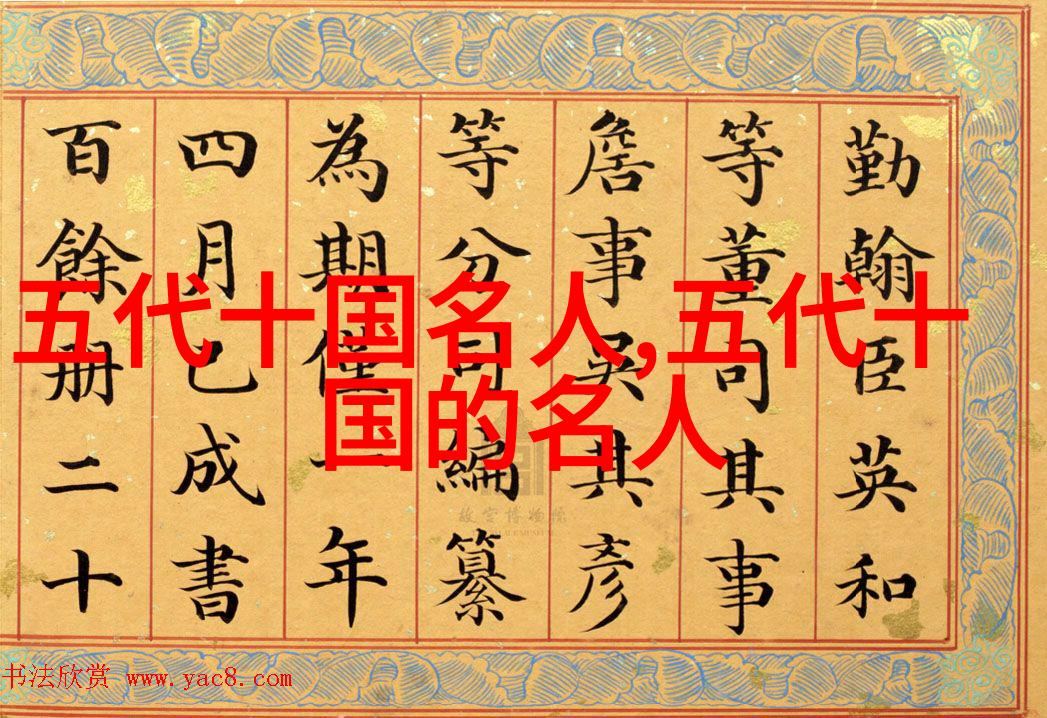 五代十国名人,五代十
国的名人
勤翰臣英和
等董司其事
詹事吳其彥
等分司編纂
為期僅一年
四月已成書
百餘册二十
故宫博物院
书法欣赏 www.yac8.com